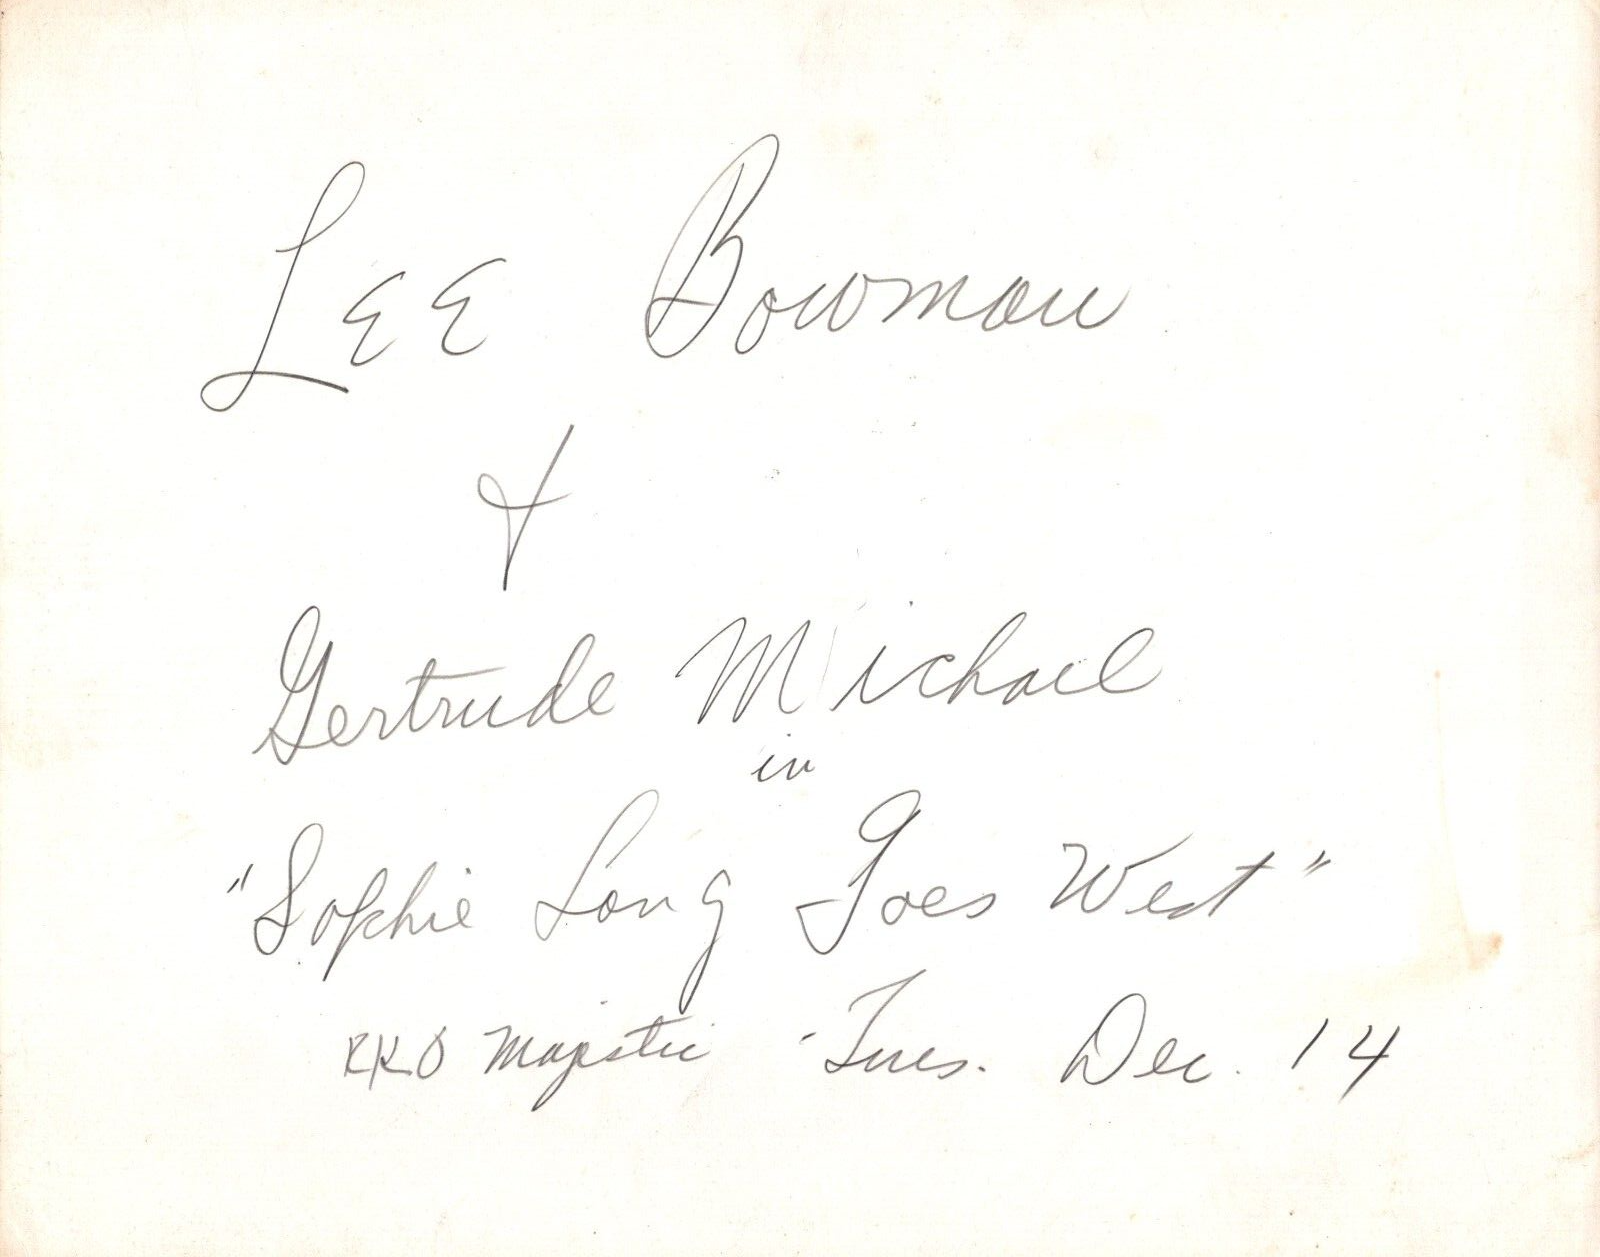 Lee Bowman
&
Gertrude Michael
in
"Sophie Lang Goes West"
RKO Majestic - Tues. Dec. 14